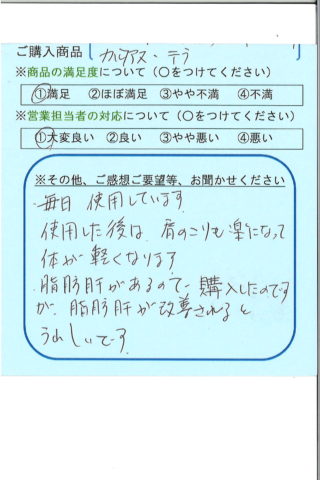 ご購入商品 カリアス・テラ
※商品の満足度について（○をつけてください）
①満足 ②ほぼ満足 ③やや不満 ④不満
※営業担当者の対応について（○をつけてください）
①大変良い ②良い ③やや悪い ④悪い
※その他、ご感想ご要望等、お聞かせください
毎日 使用しています
使用した後は 肩のこりも楽になって
体が軽くなります
脂肪肝があるので 購入したのです
が、脂肪肝が改善されると
うれしいです